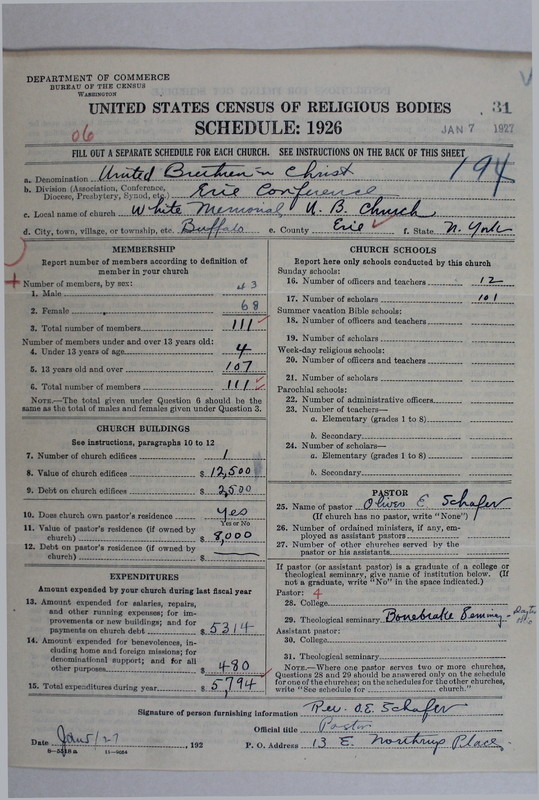 DEPARTMENT OF COMMERCE
BUREAU OF THE CENSUS
WASHINGTON
UNITED STATES CENSUS OF RELIGIOUS BODIES 31
SCHEDULE: 1926
06
JAN 7 1927
FILL OUT A SEPARATE SCHEDULE FOR EACH CHURCH. SEE INSTRUCTIONS ON THE BACK OF THIS SHEET
194
a. Denomination United Brethren in Christ
b. Division (Association, Conference, Diocese, Presbytery, Synod, etc.) Erie Conference
c. Local name of church White Memorial U. B. Church
d. City, town, village, or township, etc. Buffalo e. County Erie f. State N. York
MEMBERSHIP
Report number of members according to definition of
member in your church
Number of members, by sex:
1. Male 43
2. Female 68
3. Total number of members 111
Number of members under and over 13 years old:
4. Under 13 years of age 4
5. 13 years old and over 107
6. Total number of members 111
NOTE.—The total given under Question 6 should be the
same as the total of males and females given under Question 3.
CHURCH BUILDINGS
See instructions, paragraphs 10 to 12
7. Number of church edifices 1
8. Value of church edifices $ 12,500
9. Debt on church edifices $ 2,500
10. Does church own pastor's residence yes
Yes or No
11. Value of pastor's residence (if owned by
church) $ 8,000
12. Debt on pastor's residence (if owned by
church) $ —
EXPENDITURES
Amount expended by your church during last fiscal year
13. Amount expended for salaries, repairs,
and other running expenses; for im-
provements or new buildings; and for
payments on church debt $ 5314
14. Amount expended for benevolences, in-
cluding home and foreign missions; for
denominational support; and for all
other purposes $ 480
15. Total expenditures during year $ 5,794
CHURCH SCHOOLS
Report here only schools conducted by this church
Sunday schools:
16. Number of officers and teachers 12
17. Number of scholars 101
Summer vacation Bible schools:
18. Number of officers and teachers
19. Number of scholars
Week-day religious schools:
20. Number of officers and teachers
21. Number of scholars
Parochial schools:
22. Number of administrative officers
23. Number of teachers—
a. Elementary (grades 1 to 8)
b. Secondary
24. Number of scholars—
a. Elementary (grades 1 to 8)
b. Secondary
PASTOR
25. Name of pastor Oliver E Schafer
(If church has no pastor, write "None")
26. Number of ordained ministers, if any, em-
ployed as assistant pastors
27. Number of other churches served by the
pastor or his assistants
If pastor (or assistant pastor) is a graduate of a college or
theological seminary, give name of institution below. (If
not a graduate, write "No" in the space indicated.)
Pastor: 4
28. College
29. Theological seminary Bonebrake Seminary
Assistant pastor:
30. College
31. Theological seminary
NOTE.—Where one pastor serves two or more churches,
Questions 28 and 29 should be answered only on the schedule
for one of the churches; on the schedules for the other churches,
write "See schedule for church."
Signature of person furnishing information Rev. O.E. Schafer
Official title Pastor
Date Jan 5/27, 192 P. O. Address 13 E. Northrup Place